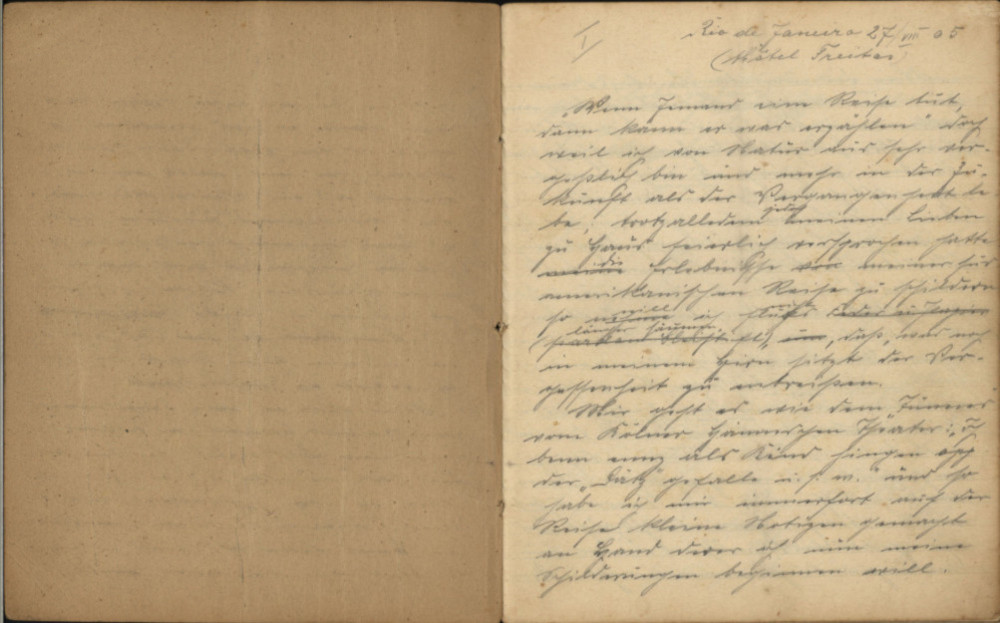 I
Rio de Janeiro 27/VII 05
(Hôtel Freitas)
„Wenn Jemand eine Reise tut,
dann kann er was erzählen" doch
weil ich von Natur aus sehr ver-
geßlich bin und mehr in der Zu-
kunft als der Vergangenheit le
be, trotzalledem jedoch meinen Lieben
zu Haus feierlich versprochen hatte
meine die Erlebnisse von meiner süd
amerikanischen Reise zu schildern
so will ich nicht
länger säumen, daß, was noch
in meinem Hirn sitzt der Ver-
gessenheit zu entreißen.
Mir geht es wie dem „Tünnes
vom Kölner Hänneschen Theater: „
als Kind
der „Dätz" gefalle u. s. w." und so
habe ich mir immerfort auf der
Reise kleine Notizen gemacht
an Hand derer ich nun meine
Schilderungen beginnen will.